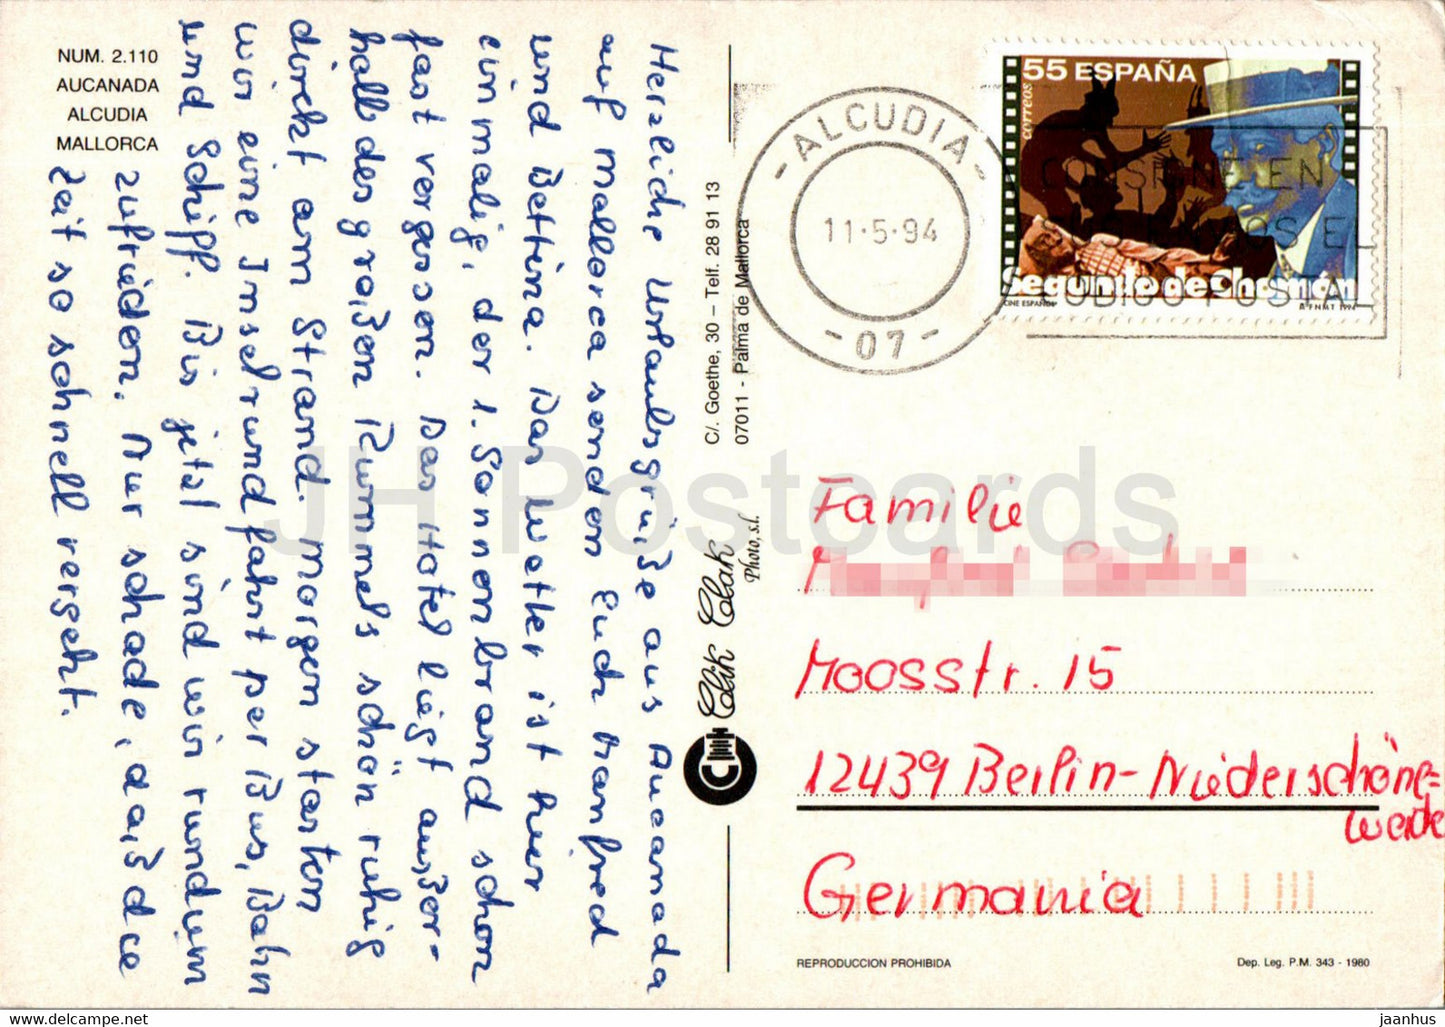 NUM. 2.110
AUCANADA
ALCUDIA
MALLORCA
Herzliche Urlaubsgrüße aus Aucanada
auf Mallorca senden Euch Manfred
und Bettina. Das Wetter ist hier
einmalig, der 1. Sonnenbrand schon
fast vergessen. Das Hotel liegt außer-
halb des großen Rummels schön ruhig
direkt am Strand. Morgen starten
wir eine Inselrundfahrt per Bus, Bahn
und Schiff. Bis jetzt sind wir rundum
zufrieden. Nur schade, daß die
Zeit so schnell vergeht.
C/. Goethe, 30 - Telf. 28 91 13
07011 - Palma de Mallorca
Clik Clak
Photo, s.l.
- ALCUDIA -
11-5-94
- 07 -
CONSIGNE EN
EL
POSTAL
55 ESPAÑA
correos
Segundo de Chomón
CINE ESPAÑOL
F N M T 1994
Familie
Moosstr. 15
12439 Berlin-Niederschöne-
weide
Germania
REPRODUCCION PROHIBIDA
Dep. Leg. P.M. 343 - 1980
JH Postcards
www.delcampe.net
jaanhus